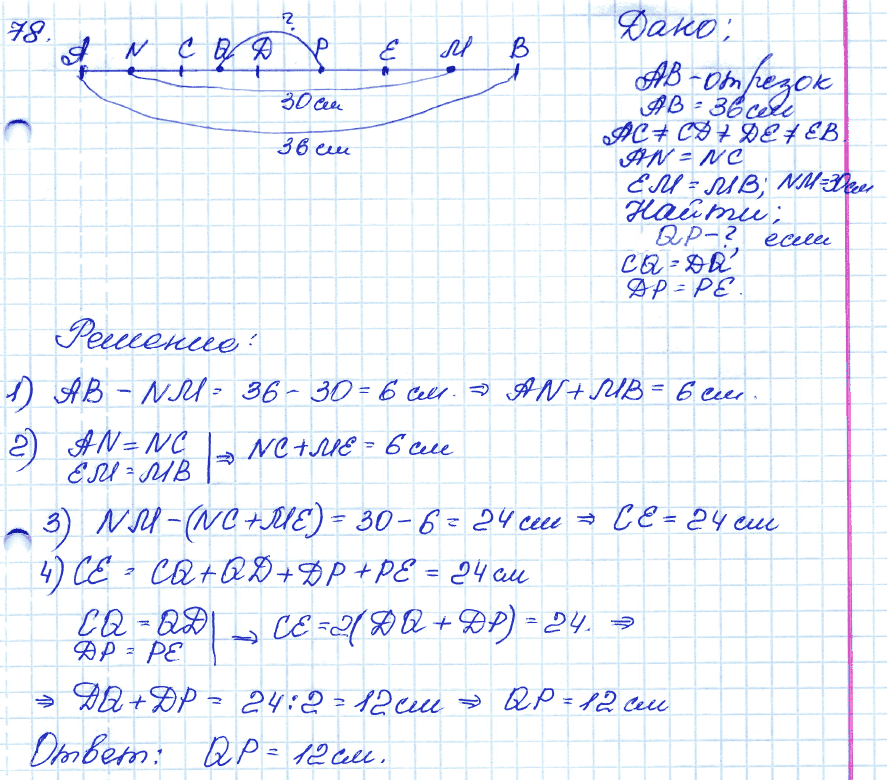 78.
?
A N C Q D P E M B
30 см
36 см
Дано:
AB - отрезок
AB = 36 см
AC ≠ CD ≠ DE ≠ EB.
AN = NC
EM = MB; NM = 30 см
Найти:
QP - ?, если
CQ = DQ
DP = PE.
Решение:
1) AB - NM = 36 - 30 = 6 см. ⇒ AN + MB = 6 см.
2) AN = NC
EM = MB | ⇒ NC + ME = 6 см
3) NM - (NC + ME) = 30 - 6 = 24 см ⇒ CE = 24 см
4) CE = CQ + QD + DP + PE = 24 см
CQ = QD
DP = PE | ⇒ CE = 2(DQ + DP) = 24. ⇒
⇒ DQ + DP = 24 : 2 = 12 см ⇒ QP = 12 см
Ответ: QP = 12 см.